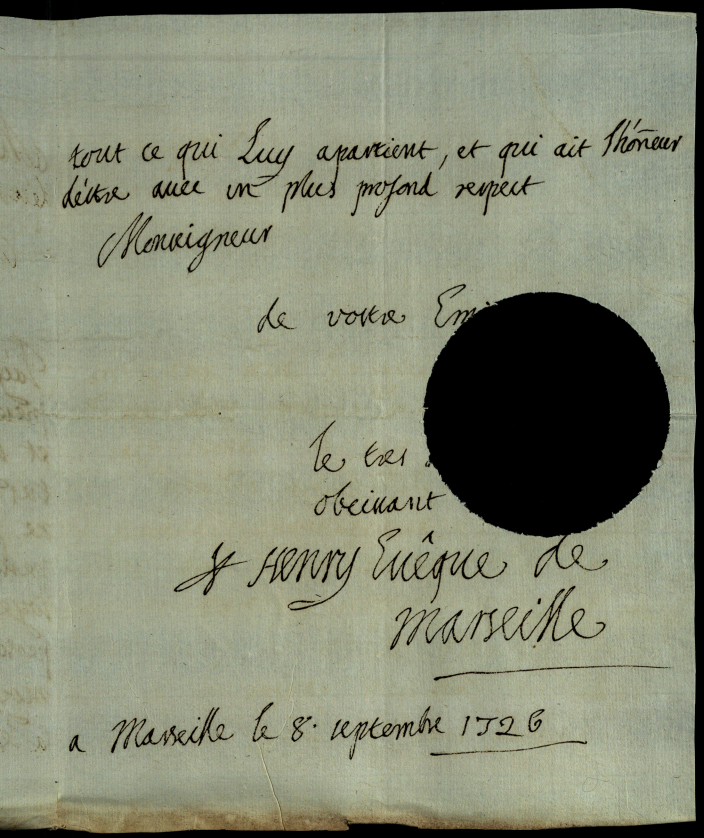 tout ce qui Luy apartient, et qui ait l'hõneur
d'étre auec un plus profond respect
Monseigneur
de vostre
le tres
obeissant
+ Henry Euêque de
Marseille
a Marseille le 8. septembre 1726